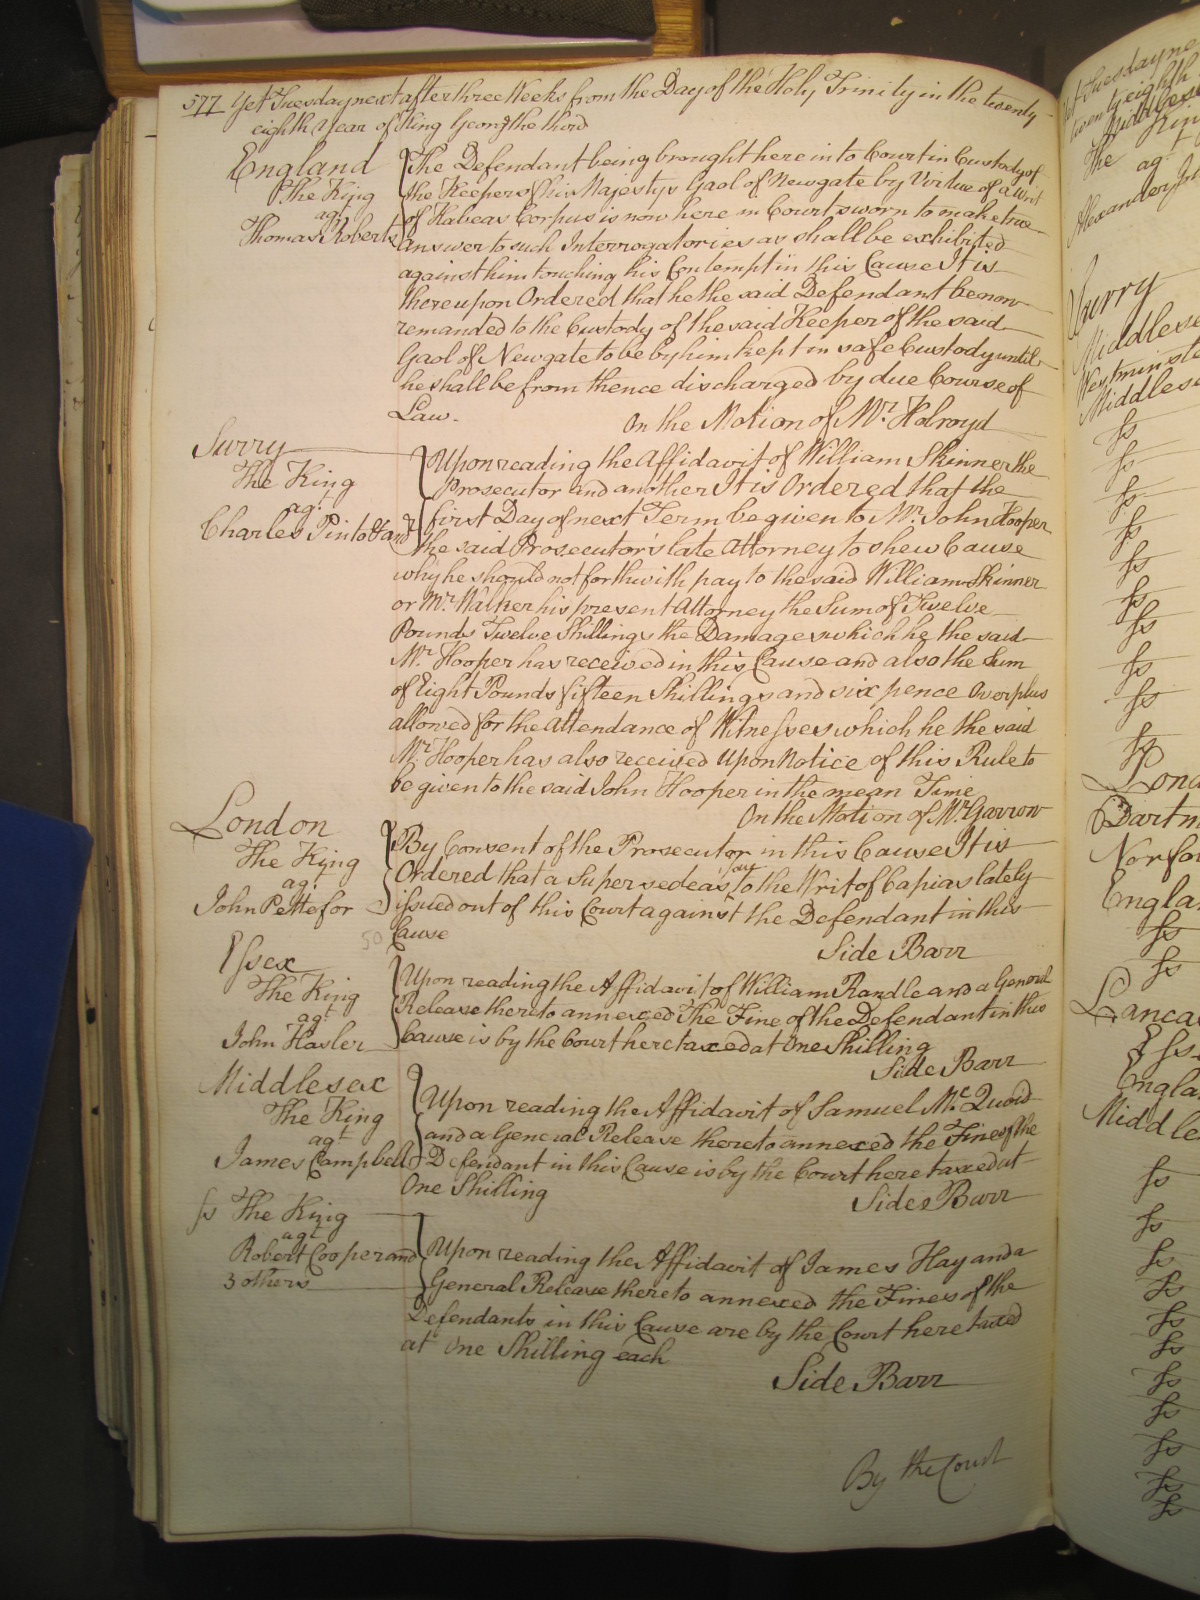 577 Yet Tuesday next after three Weeks from the Day of the Holy Trinity in the twenty
eighth Year of King George the third
England
The King
agt
Thomas Roberts
The Defendant being brought here in to Court in Custody of
the Keeper of his Majestys Gaol of Newgate by Virtue of a Writ
of Habeas Corpus is now here in Court sworn to make true
answer to such Interrogatories as shall be exhibited
against him touching his Contempt in this Cause It is
thereupon Ordered that he the said Defendant be now
remanded to the Custody of the said Keeper of the said
Gaol of Newgate to be by him kept in safe Custody until
he shall be from thence discharged by due Course of
Law.
On the Motion of Mr. Holroyd
Surry
The King
agt
Charles Pinto &
Upon reading the Affidavit of William Skinner the
Prosecutor and another It is Ordered that the
first Day of next Term be given to Mr. John Hooper
the said Prosecutor's late Attorney to shew Cause
why he should not forthwith pay to the said William Skinner
or Mr. Walker his present Attorney the Sum of Twelve
Pounds Twelve Shillings the Damages which he the said
Mr. Hooper has received in this Cause and also the Sum
of Eight Pounds fifteen Shillings and six pence Overplus
allowed for the Attendance of Witnesses which he the said
Mr. Hooper has also received Upon Notice of this Rule to
be given to the said John Hooper in the mean Time
On the Motion of Mr. Garrow
London
The King
agt
John Pettefor
By Consent of the Prosecutor in this Cause It is
Ordered that a Supersedeas issue to the Writ of Capias lately
issued out of this Court against the Defendant in this
Cause
Side Barr
50
Essex
The King
agt
John Hasler
Upon reading the Affidavit of William Randle and a General
Release thereto annexed The Fine of the Defendant in this
Cause is by the Court here taxed at One Shilling
Side Barr
Middlesex
The King
agt
James Campbell
Upon reading the Affidavit of Samuel Mc. Quoid
and a General Release thereto annexed the Fine of the
Defendant in this Cause is by the Court here taxed at
One Shilling
Side Barr
ss The King
agt
Robert Cooper and
3 others
Upon reading the Affidavit of James Hay and a
General Release thereto annexed the Fines of the
Defendants in this Cause are by the Court here taxed
at One Shilling each
Side Barr
By the Court
The
agt
Surry
Middlese
Westminste
Middlese
ss
ss
ss
ss
ss
ss
ss
ss
ss
ss
Lon
Dartm
Norfo
Engla
ss
ss
Lanca
Ess
Engla
Middle
ss
ss
ss
ss
ss
ss
ss
ss
ss
ss
ss